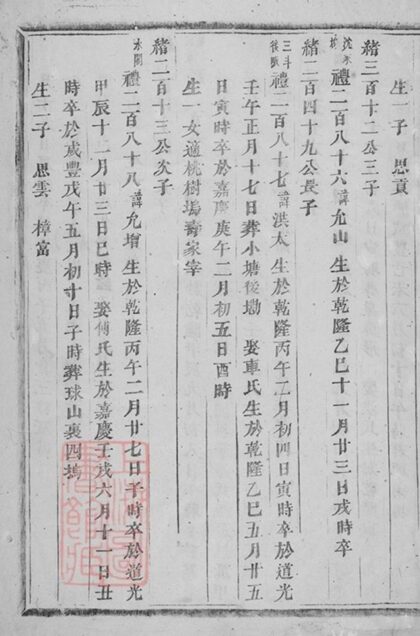 生一子 思貢
緒三百十二公三子
禮二百八十六諱允山 生於乾隆乙巳十一月廿三日戌時卒
緒二百四十九公長子
三斗後畈禮二百八十七諱洪太 生於乾隆丙午二月初四日寅時卒於道光
壬午正月十七日葬小塘後塴 娶車氏生於乾隆乙巳五月廿五
日寅時卒於嘉慶庚午二月初五日酉時
生一女適桃樹塢壽家宰
緒二百十三公次子
禮二百八十八諱允增 生於乾隆丙午二月廿七日子時卒於道光
甲辰十二月廿三日巳時 娶傅氏生於嘉慶壬戌六月十一日丑
時卒於咸豐戊午五月初十日子時葬球山裏四塢
生二子 思雲 樟富